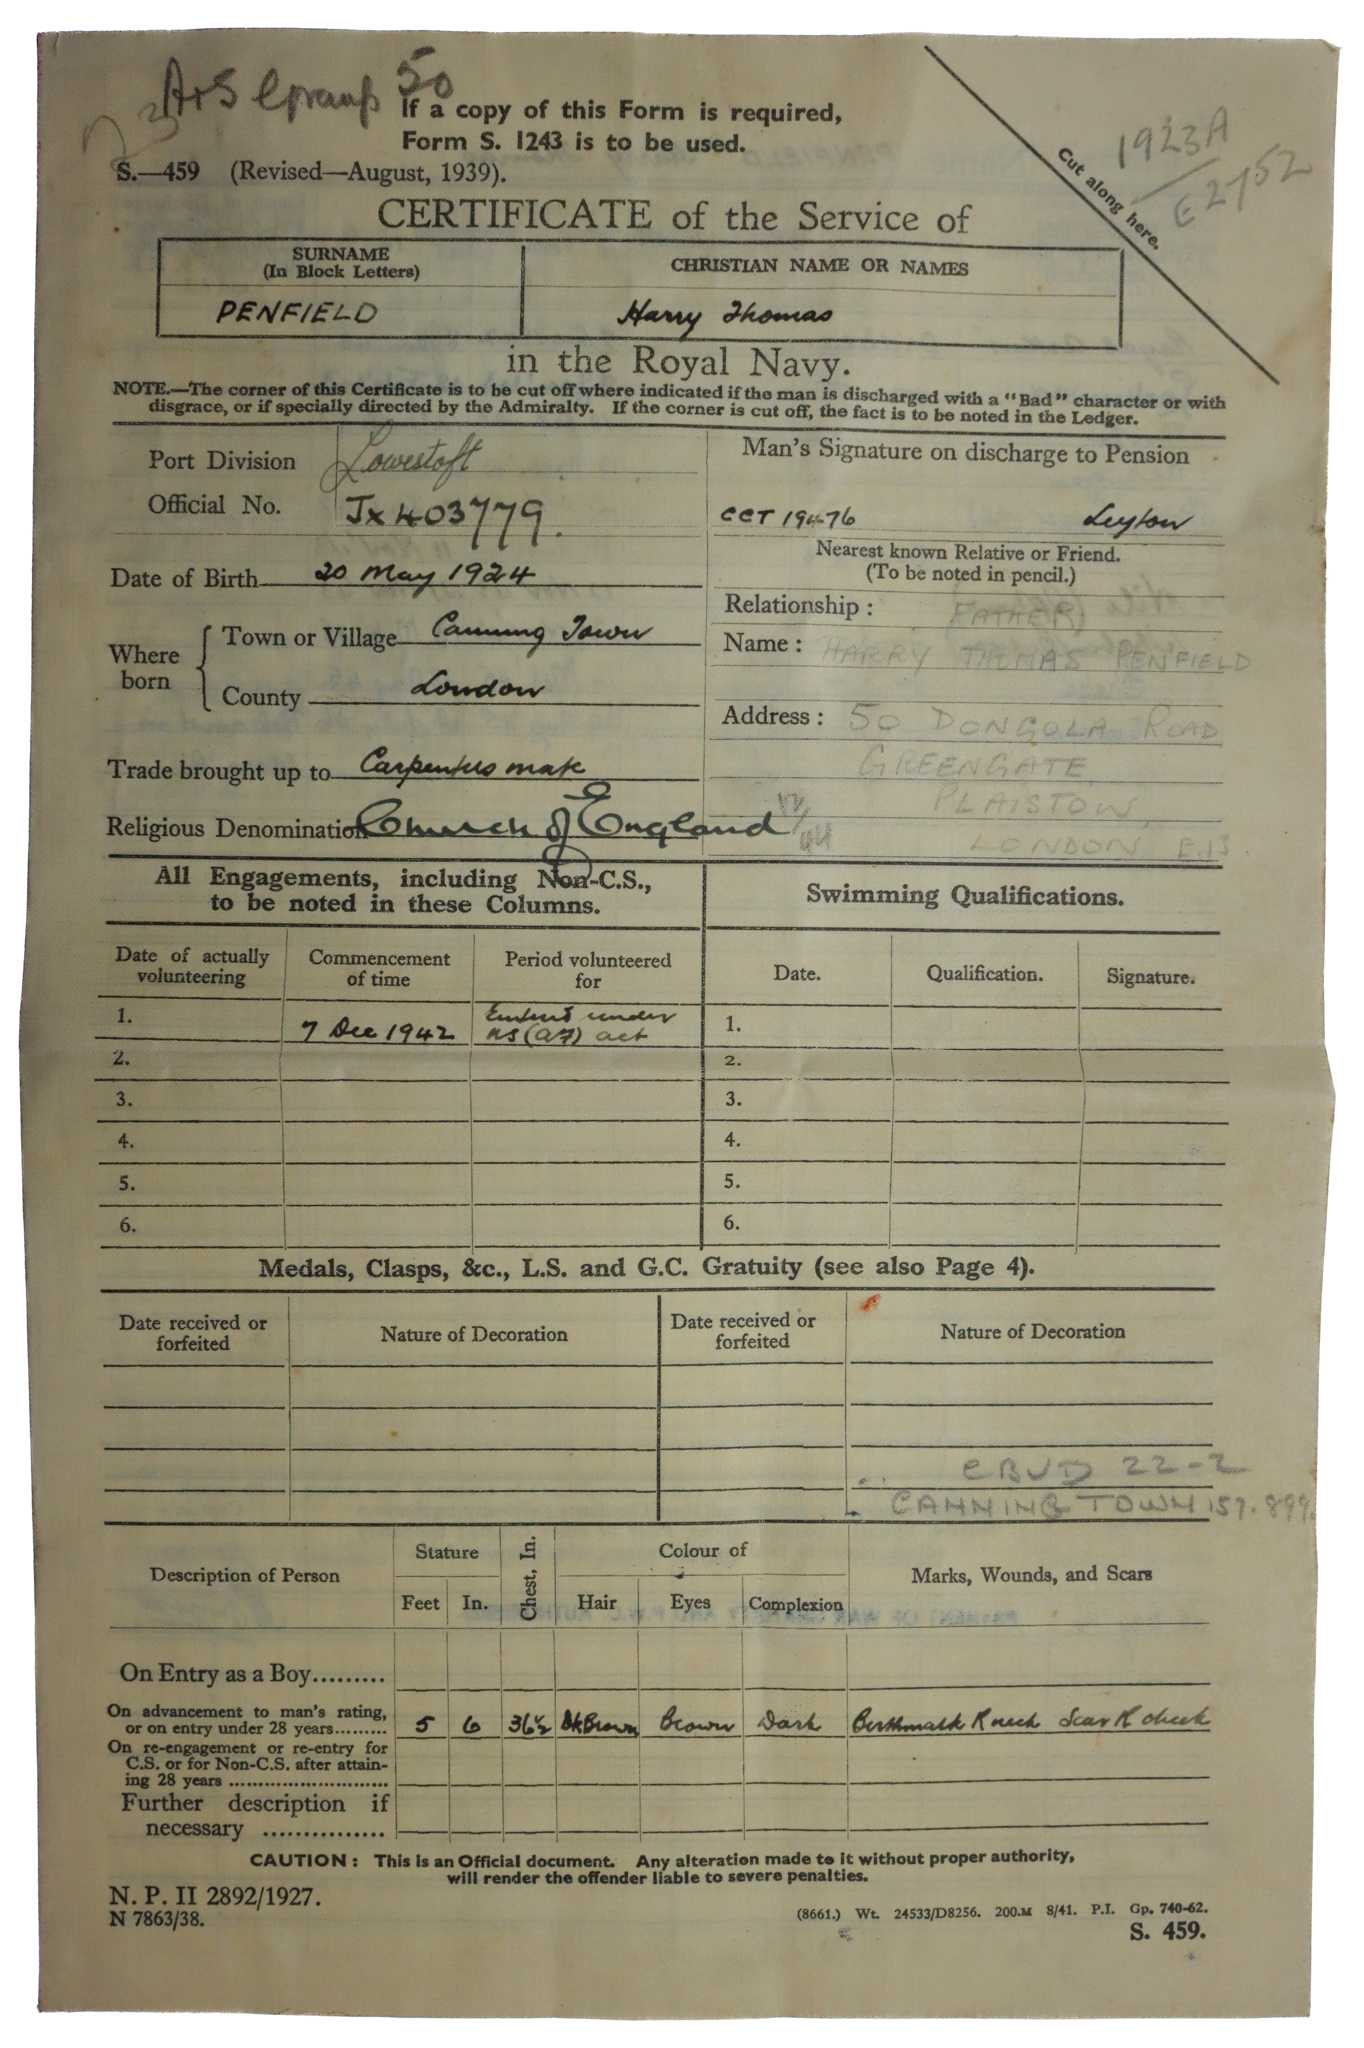 A&S Group 50
If a copy of this Form is required,
Form S. 1243 is to be used.
1923A
E 2752
Cut along here.
S.—459 (Revised—August, 1939).
CERTIFICATE of the Service of
SURNAME
(In Block Letters)
CHRISTIAN NAME OR NAMES
PENFIELD
Harry Thomas
in the Royal Navy.
NOTE.—The corner of this Certificate is to be cut off where indicated if the man is discharged with a "Bad" character or with
disgrace, or if specially directed by the Admiralty. If the corner is cut off, the fact is to be noted in the Ledger.
Port Division Lowestoft
Official No. Jx 403779.
Date of Birth 20 May 1924
Where born
Town or Village Canning Town
County London
Trade brought up to Carpenters mate
Religious Denomination Church of England
Man's Signature on discharge to Pension
CCT 19476 Leyton
Nearest known Relative or Friend.
(To be noted in pencil.)
Relationship: FATHER
Name: HARRY THOMAS PENFIELD
Address: 50 DONGOLA ROAD
GREENGATE
PLAISTOW,
LONDON E.13.
12/44
All Engagements, including Non-C.S.,
to be noted in these Columns.
Swimming Qualifications.
Date of actually volunteering
Commencement of time
Period volunteered for
Date.
Qualification.
Signature.
1. 7 Dec 1942 Entered under NS (AF) act
1.
2.
2.
3.
3.
4.
4.
5.
5.
6.
6.
Medals, Clasps, &c., L.S. and G.C. Gratuity (see also Page 4).
Date received or forfeited
Nature of Decoration
Date received or forfeited
Nature of Decoration
22-2
CANNING TOWN 157.899.
Description of Person
Stature
Feet
In.
Chest, In.
Colour of
Hair
Eyes
Complexion
Marks, Wounds, and Scars
On Entry as a Boy.........
On advancement to man's rating,
or on entry under 28 years.........
5 6 36½ Dk Brown Brown Dark Birthmark R neck Scar R cheek
On re-engagement or re-entry for
C.S. or for Non-C.S. after attain-
ing 28 years ...........................
Further description if
necessary ...............
CAUTION: This is an Official document. Any alteration made to it without proper authority,
will render the offender liable to severe penalties.
N. P. II 2892/1927.
N 7863/38.
(8661.) Wt. 24533/D8256. 200.M 8/41. P.I. Gp. 740-62.
S. 459.